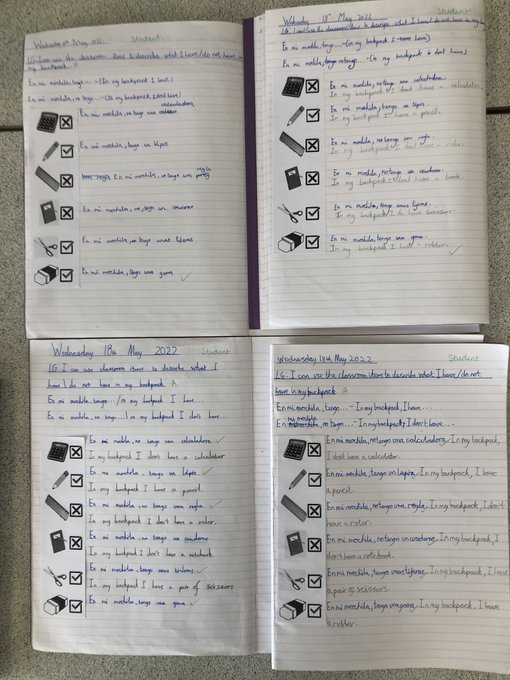 Wednesday 18th May 2022 Student
LG: I can use the classroom items to describe what I have/do not have in
my backpack A
En mi mochila, tengo... - (In my backpack I have)
En mi mochila, no tengo... - (In my backpack I don't have)
En mi mochila, no tengo una calculadora
En mi mochila, tengo un lápiz
En mi mochila, no tengo una regla
En mi mochila, no tengo un cuaderno
En mi mochila, tengo unas tijeras
En mi mochila, tengo una goma
Wednesday 18th May 2022 Student
LG: I can use the classroom items to describe what I have/do not have in my
En mi mochila, tengo - (In my backpack I have)
En mi mochila, no tengo - (In my backpack I don't have)
En mi mochila, no tengo una calculadora.
In my backpack I don't have a calculator.
En mi mochila, tengo un lápiz.
In my backpack I have a pencil.
En mi mochila, no tengo una regla.
In my backpack I don't have a ruler.
En mi mochila, no tengo un cuaderno.
In my backpack I don't have a
En mi mochila, tengo unas tijeras.
In my backpack I do have scissors.
En mi mochila, tengo una goma.
In my backpack I have a rubber.
Wednesday 18th May 2022 Student
LG: I can use the classroom items to describe what I
have/do not have in my backpack. A
En mi mochila, tengo... /In my backpack I have...
En mi mochila, no tengo... /In my backpack I don't have...
En mi mochila, no tengo una calculadora.
In my backpack I don't have a calculator
En mi mochila, tengo un lápiz.
In my backpack I have a pencil.
En mi mochila, no tengo una regla.
In my backpack I don't have a ruler.
En mi mochila, no tengo un cuaderno
In my backpack I don't have a notebook.
En mi mochila, tengo unas tijeras.
In my backpack I have a pair of scissors.
En mi mochila, tengo una goma.
Wednesday 18th May 2022 Student
LG: I can use the classroom items to describe what I have/do not
have in my backpack. A
En mi mochila, tengo... - In my backpack, I have...
En mi mochila, no tengo... - In my backpack, I don't have...
En mi mochila, no tengo una calculadora. In my backpack,
I don't have a calculator.
En mi mochila, tengo un lápiz. In my backpack, I have
a pencil.
En mi mochila, no tengo una regla. In my backpack, I don't
have a ruler.
En mi mochila, no tengo un cuaderno. In my backpack, I
don't have a notebook.
En mi mochila, tengo unas tijeras. In my backpack, I have
a pair of scissors.
En mi mochila, tengo una goma. In my backpack, I have
a rubber.